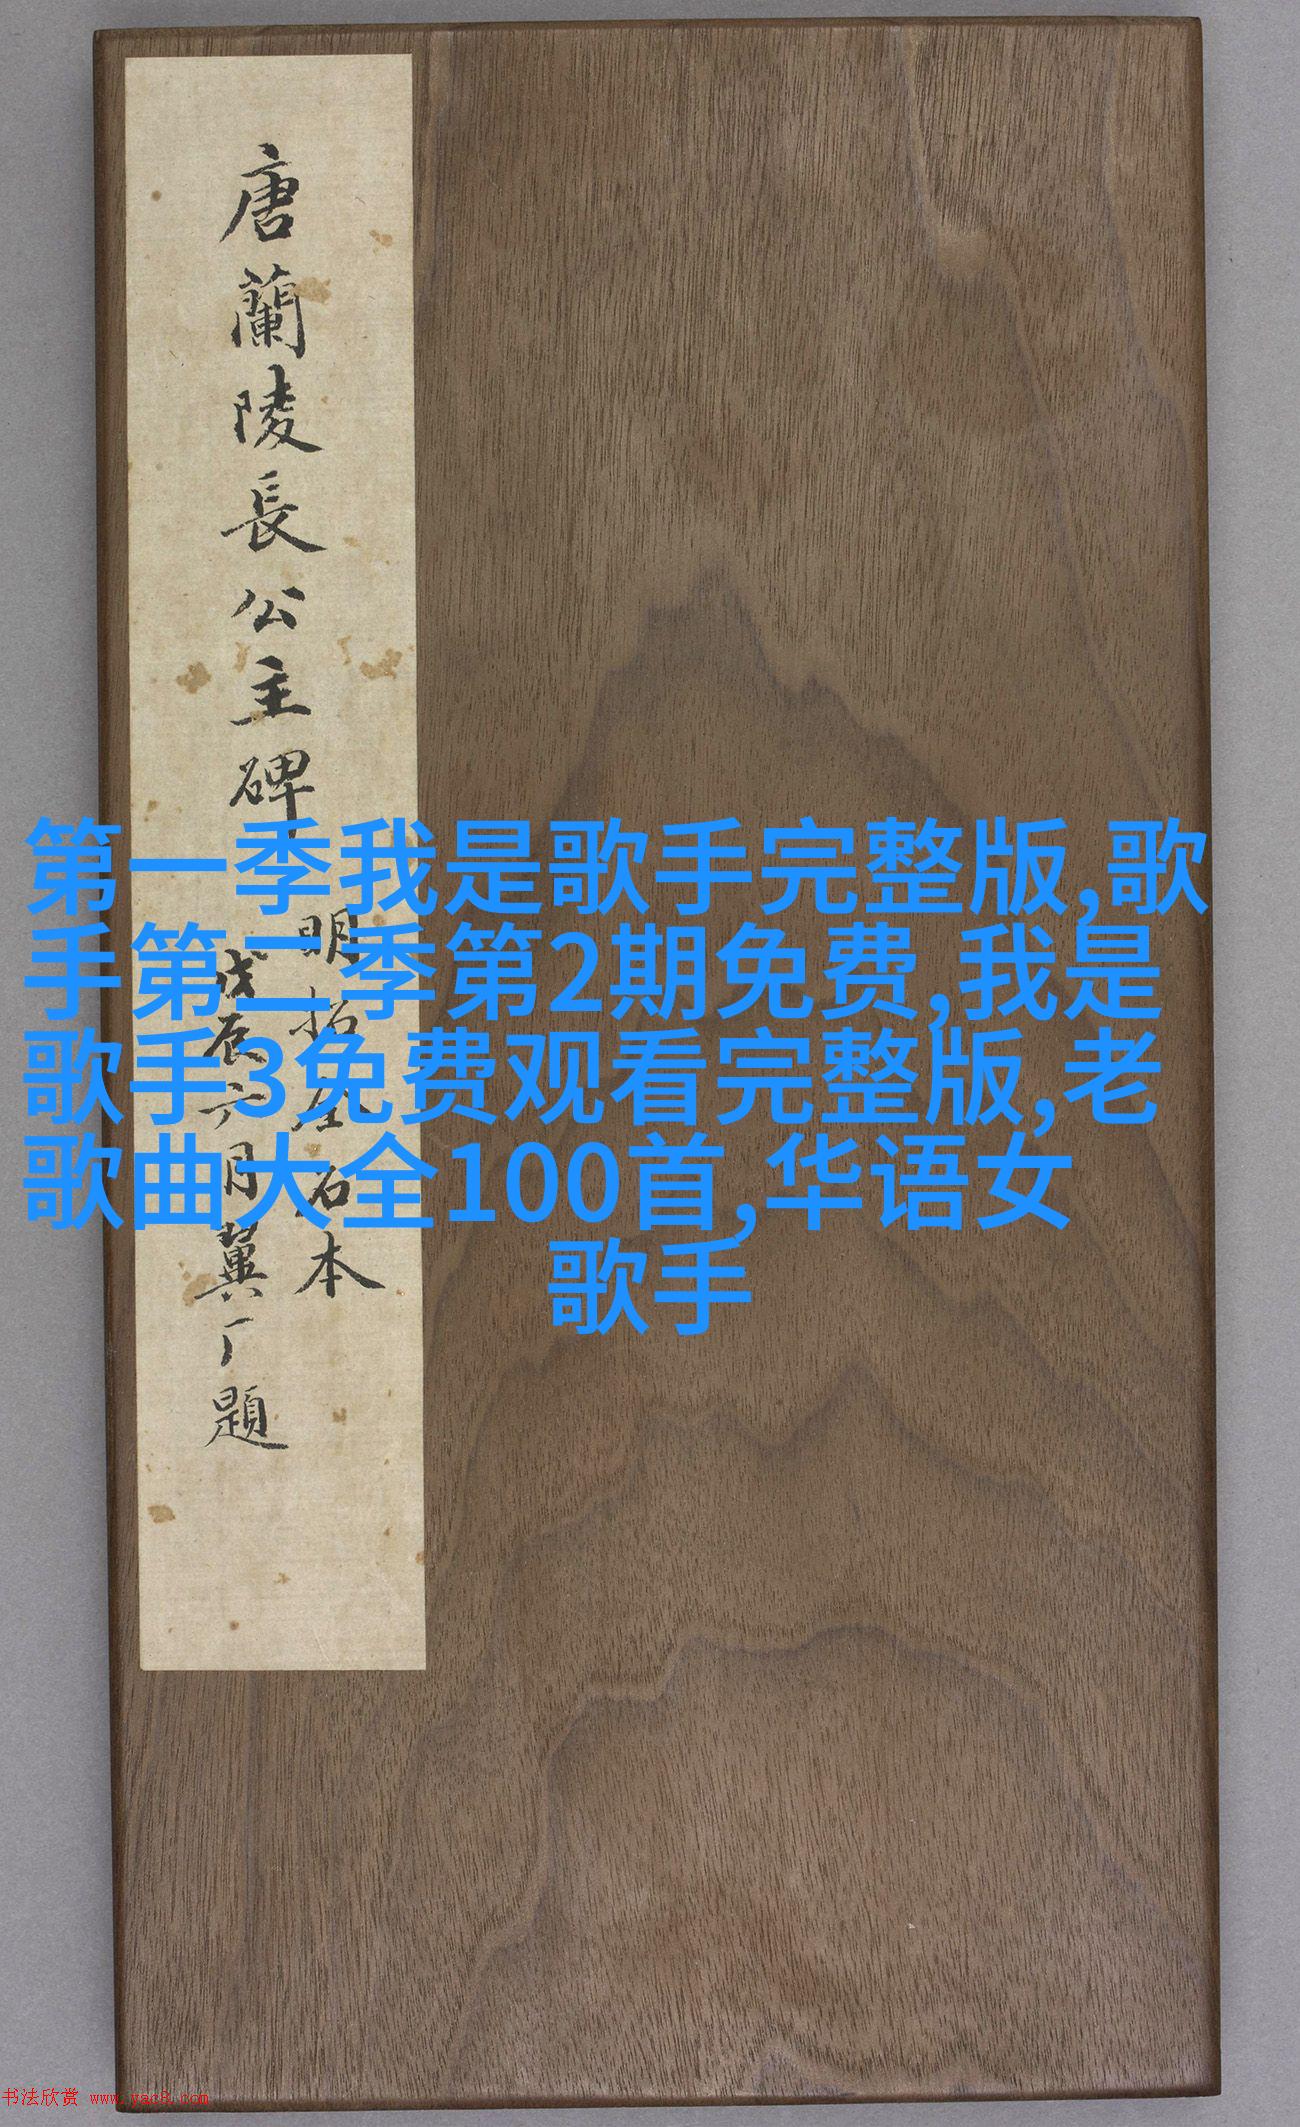 唐蘭陵長公主碑
明拓全石本
戊辰六月翼厂題
第一季我是歌手完整版,歌
手第二季第2期免费,我是
歌手3免费观看完整版,老
歌曲大全100首,华语女
歌手
书法欣赏 www.yac8.com